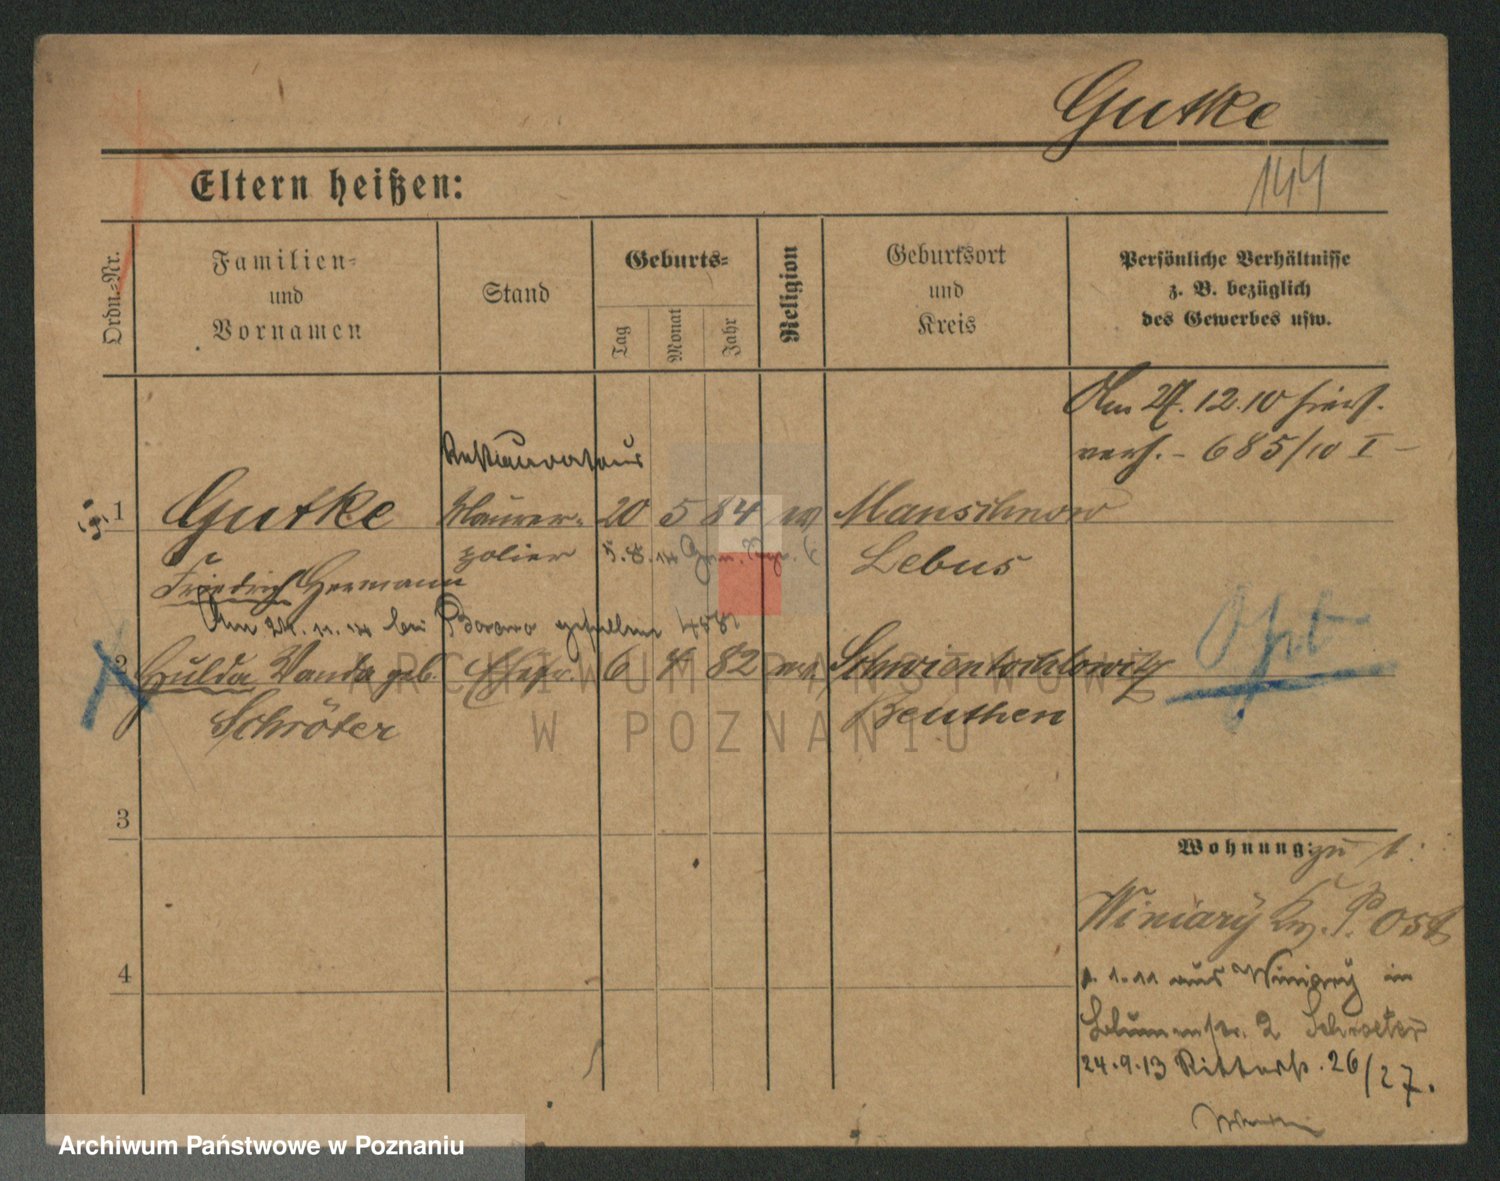 Gutke
144
Eltern heißen:
Ordn.-Nr.
Familien-
und
Vornamen
Stand
Geburts-
Tag
Monat
Jahr
Religion
Geburtsort
und
Kreis
Persönliche Verhältnisse
z. B. bezüglich
des Gewerbes usw.
Am 27.12.10 hier
verh. - 685/10 I -
Restaurateur
1 Gutke Maurer- 20 5 84 ev Manschnow
polier 5.8.14 Lebus
Friedrich Hermann
Am 24.11.14 bei gefallen 458
2 Hulda Wanda geb. Ehefr. 6 4 82 ev. Schwientochlowitz
Schröter Beuthen
Opt
3
4
Wohnung: zu 1:
Winiary Post
1.1.11 aus Winiary in
Blumenstr. 2 Schroeter
24.9.13 Ritterstr. 26/27.
ARCHIWUM PAŃSTWOWE
W POZNANIU
Archiwum Państwowe w Poznaniu